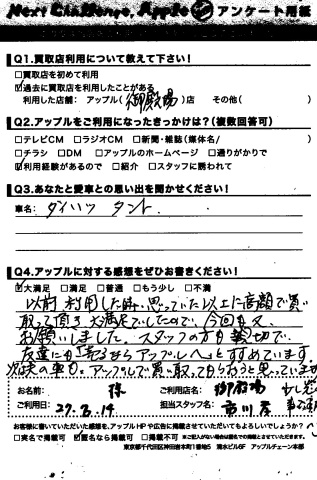 Next Challenge, Apple アンケート用紙
Q1.買取店利用について教えて下さい!
□買取店を初めて利用
☑過去に買取店を利用したことがある
利用した店舗: アップル(御殿場)店 その他( )
Q2.アップルをご利用になったきっかけは?(複数回答可)
□テレビCM □ラジオCM □新聞・雑誌(媒体名/ )
□チラシ □DM □アップルのホームページ □通りがかりで
☑利用経験があるので □紹介 □スタッフに誘われて
Q3.あなたと愛車との思い出を聞かせください!
車名: ダイハツ タント
Q4.アップルに対する感想をぜひお書きください!
☑大満足 □満足 □普通 □もう少し □不満
以前利用した時、思っていた以上に高額で買い
取って頂き大満足でしたので、今回も又
お願いしました。スタッフの方も親切で、
友達にも「売るならアップルへ」とすめています。
の車も。アップルで買い取ってもらおうと思っています
お名前: 様 ご利用店名: 御殿場
ご利用日: 27.3.14 担当スタッフ名: 市川
お客様に書いていただいた感想を、アップルHPや広告に掲載させていただいてもよろしいでしょうか?
□実名で掲載可 ☑匿名なら掲載可 □掲載不可 ※ご記入がない場合は匿名での掲載とさせていただきます。
東京都千代田区神田岩本町1番地5 清水ビル5F アップルチェーン本部